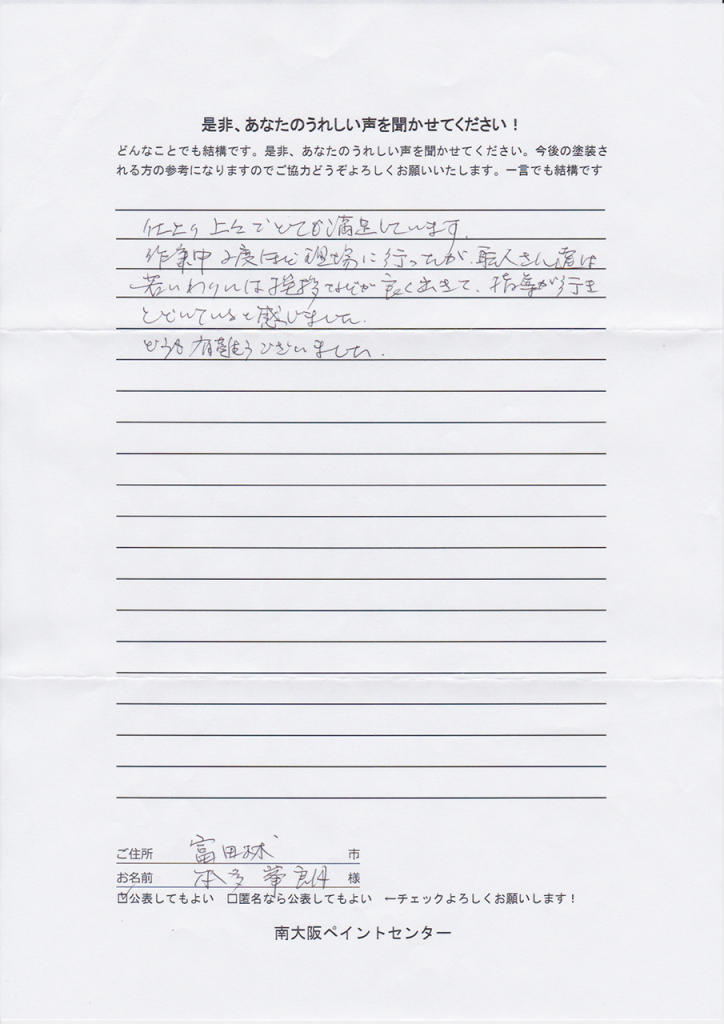 是非、あなたのうれしい声を聞かせてください！
どんなことでも結構です。是非、あなたのうれしい声を聞かせてください。今後の塗装さ
れる方の参考になりますのでご協力どうぞよろしくお願いいたします。一言でも結構です
仕上り上々でとても満足しています。
作業中2度ほど現場に行ったが、職人さん達は
若いわりには挨拶などが良く出きて、指導が行き
とどいていると感じました。
どうも有難うございました。
ご住所 富田林 市
お名前 本多 様
☑公表してもよい □匿名なら公表してもよい ←チェックよろしくお願いします！
南大阪ペイントセンター